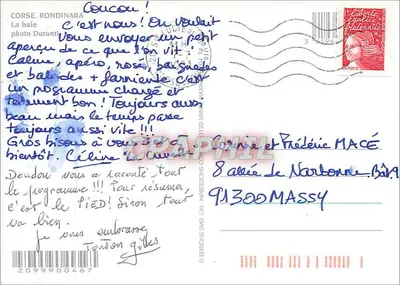 CORSE. RONDINARA
La baie
photo Durante
Coucou !
C'est nous ! On voulait
vous envoyer un petit
aperçu de ce que l'on vit :
Calme, apéro, rosé, baignades
et balades + farniente c'est
un programme chargé et
tellement bon ! Toujours aussi
beau mais le temps passe
toujours aussi vite !!!
Gros bisous à vous et à
bientôt. Céline
Doudou vous a raconté tout
le programme !!! Pour résumer,
c'est le PIED ! Sinon tout
va bien.
Je vous embrasse
Tonton Gilles
2099900467
liberté
égalité
fraternité
Corinne et Frédéric MACÉ
8 allée de Narbonne Bât 9
91300 MASSY